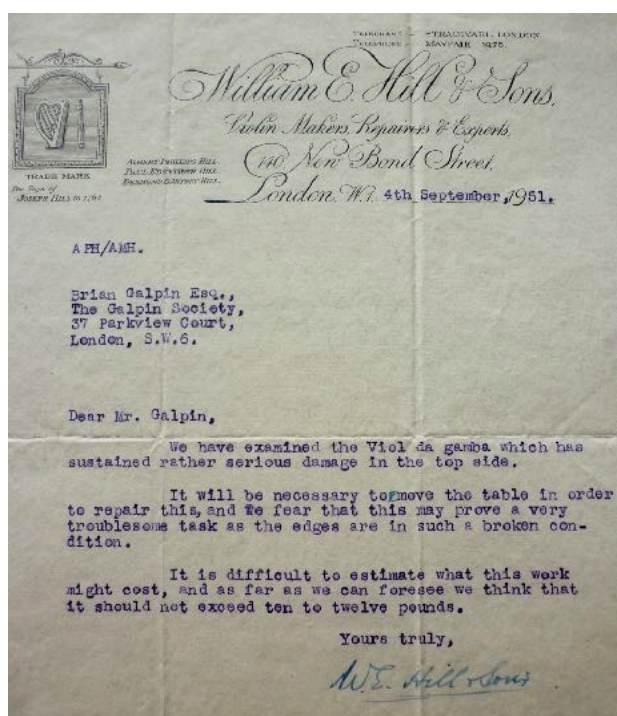 TELEGRAMS – STRADIVARI, LONDON.
TELEPHONE – MAYFAIR 8175.
William E. Hill & Sons,
Violin Makers, Repairers & Experts,
140, New Bond Street,
TRADE MARK
The Sign of
JOSEPH HILL in 1762
ALBERT PHILLIPS HILL.
PAUL EBSWORTH HILL.
DESMOND D'ARTREY HILL.
London, W.1. 4th September, 1951.
APH/AMH.
Brian Galpin Esq.,
The Galpin Society,
37 Parkview Court,
London, S.W.6.
Dear Mr. Galpin,
We have examined the Viol da gamba which has
sustained rather serious damage in the top side.
It will be necessary to move the table in order
to repair this, and we fear that this may prove a very
troublesome task as the edges are in such a broken con-
dition.
It is difficult to estimate what this work
might cost, and as far as we can foresee we think that
it should not exceed ten to twelve pounds.
Yours truly,
W.E. Hill & Sons